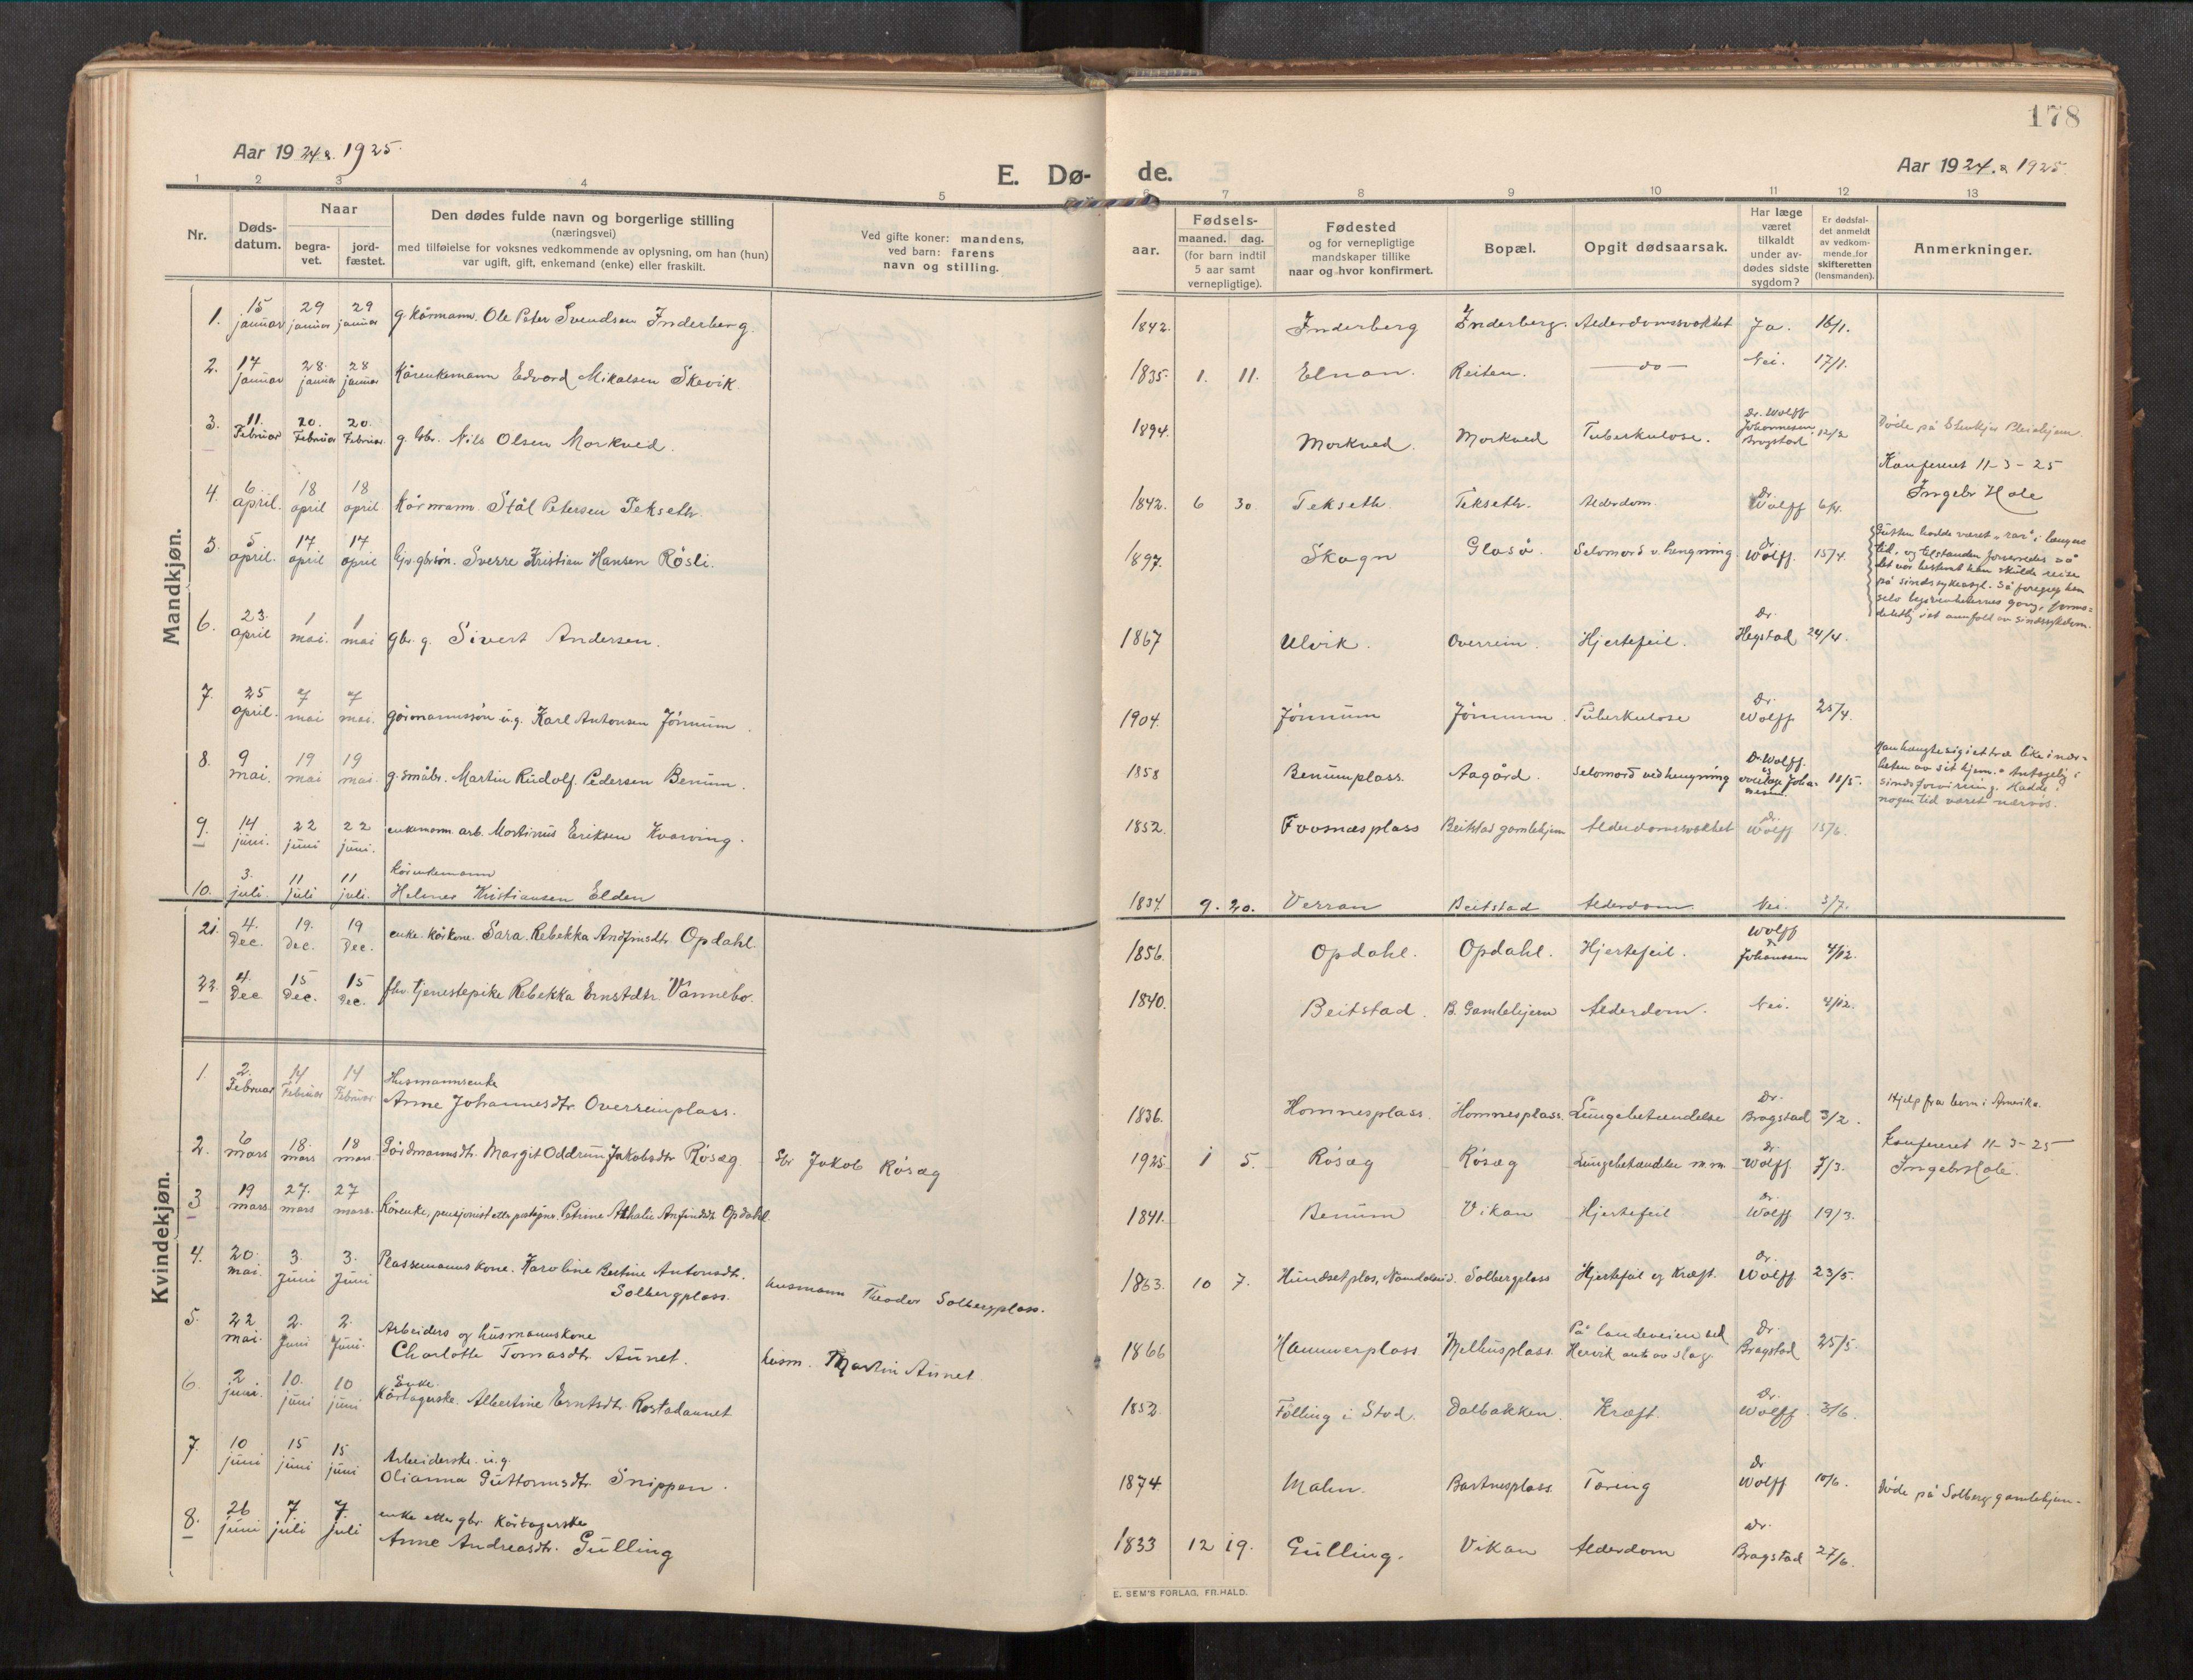 178
Aar 1924 & 1925.
E. Dø- de.
Aar 1924. & 1925.
1 2 3 4 5 6 7 8 9 10 11 12 13
Nr.
Døds-
datum.
Naar
begra-
vet.
jord-
fæstet.
Den dødes fulde navn og borgerlige stilling
(næringsvei)
med tilføielse for voksnes vedkommende av oplysning, om han (hun)
var ugift, gift, enkemand (enke) eller fraskilt.
Ved gifte koner: mandens,
ved barn: farens
navn og stilling.
aar.
Fødsels-
maaned. dag.
(for barn indtil
5 aar samt
vernepligtige).
Fødested
og for vernepligtige
mandskaper tillike
naar og hvor konfirmert.
Bopæl.
Opgit dødsaarsak.
Har læge
været
tilkaldt
under av-
dødes sidste
sygdom?
Er dødsfal-
det anmeldt
av vedkom-
mende for
skifteretten
(lensmanden).
Anmerkninger.
Mandkjøn.
1. 15 januar 29 januar 29 januar g. kårmann. Ole Peter Svendsen Inderberg. 1842. Inderberg Inderberg. Alderdomssvakhet Ja. 16/1.
2. 17 januar 28. januar 28 januar Kårenkemann Edvard Mikalsen Skevik. 1835. 1. 11. Elnan. Reiten. — do — Nei. 17/1.
3. 11. Februar 20. Februar 20. Februar g. gbr. Nils Olsen Morkved. 1894. Morkved. Morkved Tuberkulose. Dr. Wolff Johannesen Bragstad 12/2 Døde på Stenkjer Pleiehjem.
Konfereret 11-3-25
Ingebr Hole
4. 6 april. 18 april 18 april Kårmann. Stål Petersen Tekseth. 1842. 6 30. Tekseth. Tekseth. Alderdom. Dr. Wolff 6/4.
5. 5 april. 17 april 17 april Sverre Kristian Hansen Røsli. 1897. Skogn Glasø. Selvmord v. hengning. Dr. Wolff. 15/4. Gutten hadde været "rar" i længere
tid, og tilstanden forverredes så
det var bestemt han skulde reise
på sindssykeasyl. Så foregrep han
selv begivenhetenes gang, formo-
dentlig i et anfald av sindssykdom.
6. 23. april 1 mai. 1 mai gbr. g. Sivert Andersen. 1867 Ulvik. Overrein. Hjertefeil. Dr. Hegstad 24/4.
7. 25 april. 7 mai 7 mai. gårmannssøn u.g. Karl Antonsen Jønnum. 1904. Jønnum Jønnum. Tuberkulose Dr. Wolff. 25/4.
8. 9 mai. 19 mai 19 mai. g. småbr. Martin Rudolf Pedersen Benum. 1858 Benumplass. Aagård. Selvmord ved hengning Dr. Wolff. 11/5. Han hængte sig i et træ like i nær-
heten av sit hjem. Antagelig i
sindsforvirring. Hadde i
nogen tid været nervøs.
9. 14 juni. 22 juni 22 juni. enkemann arb. Martinus Eriksen Kvarving. 1852. Fosnæsplass Beitstad gamlehjem Alderdomssvakhet Dr. Wolff 15/6.
10. 3. juli. 11 juli 11 juli. Kårenkemann
Helmer Kristiansen Elden 1834. 9. 20. Verran Beitstad Alderdom Nei. 3/7.
21. 4. Dec. 19. Dec. 19 Dec. enke. kårkone. Sara Rebekka Andfinsdtr. Opdahl. 1856. Opdahl. Opdahl. Hjertefeil. Wolff & Johansson 4/12.
22. 4. Dec 15 Dec. 15 Dec. fhv. tjenestepike Rebekka Ernstdtr. Vannebo. 1840. Beitstad. B. Gamlehjem Alderdom. Nei. 4/12.
Kvindekjøn.
1. 2. Februar 14 Februar 14 Februar Husmannsenke
Anne Johannesdtr Overreinplass. 1836. Homnesplass. Homnesplass. Lungebetændelse Dr. Bragstad 3/2. Hjelp fra børn i Amerika.
2. 6 mars 18. mars 18 mars. Gårdmannsdtr. Margit Oddrun Jakobsdtr Røsæg. Gbr Jakob Røsæg 1925 1 5. Røsæg Røsæg Lungebetændelse m.m. Dr. Wolff. 7/3. Konfereret 11-3-25
Ingebr Hole.
3 19 mars 27. mars 27 mars. Kårenke, pensjonist etter Petrine Athalie Anfindsdtr Opdahl. 1841. Benum Vikan Hjertefeil Dr. Wolff 19/3.
4. 20. mai. 3. Juni 3. Juni Plassemannskone. Karoline Bertine Antonsdtr.
Solbergplass. husmann Theodor Solbergplass. 1863. 10 7. Hundsetplas, Namdalseid. Solbergplass Hjertefeil og Kræft. Dr. Wolff 23/5.
5. 22 mai. 2. Juni 2. Juni. Arbeiders og husmannskone
Charlotte Tomasdtr. Aunet. husm. Martin Aunet. 1866 Hammerplass Melhusplass. På landeveien ved
Hervik ant. av slag. Dr. Bragstad 25/5.
6. 2 juni. 10. juni 10 juni Enke.
Kårtagerske. Albertine Erntsdtr. Rostadaunet 1852. Følling i Stod. Dalbakken. Kræft. Dr. Wolff. 3/6.
7. 10 juni 15 juni 15 juni Arbeiderske u.g.
Olianna Guttormsdtr. Snippen. 1874. Malm. Bartnesplass. Tæring Dr Wolff 10/6. Døde på Solberg gamlehjem.
8. 26 juni 7 juli 7. juli enke etter gbr. Kårtagerske
Anne Andreasdtr. Gulling 1833 12 19. Gulling. Vikan Alderdom Dr. Bragstad 27/6.
E. SEM'S FORLAG, FR.HALD.